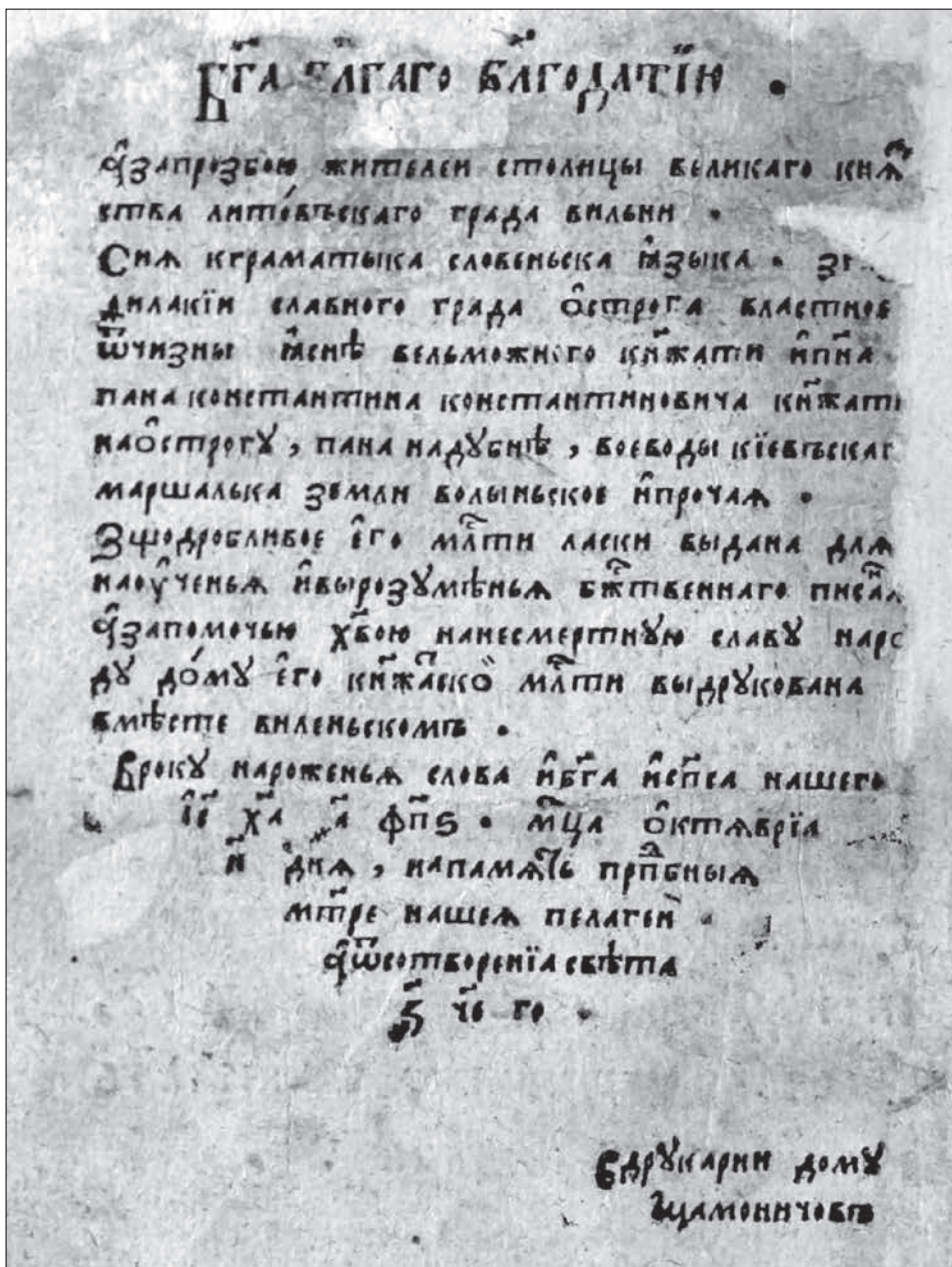 Бг҃а бл҃гаго бл҃годатїю .
а҆ запрозбою жителей столицы великаго кня҃
ства лито́въскаго града вильни .
Сиѧ кграматыка словеньска ꙗ҆зыка .
дилакїи славного града о҆строга властное
ѿчизны ꙗ҆сне вельможного кн҃жати и҆пн҃а
пана константина константиновича кн҃жати
нао҆строгꙋ , пана надꙋбнѣ , воеводы кїевъскаг
маршалька земли волыньское и҆прочаꙗ .
Зщодробливое е҆го мл҃ти ласки выдана длѧ
наоу҆ченьѧ и҆вырозꙋмѣньѧ бж҃твеннаго
а҆запомочью хв҃ою нанесмертнꙋю славꙋ наро
дꙋ до́мꙋ е҆го кн҃жаско мл҃ти выдрꙋкована
вмѣсте виленьскомъ .
Врокꙋ нароженьѧ слова и҆бг҃а и҆сп҃са нашего
і҆с҃ ха҃ ҂а҃ фп҃ѕ . мц҃а о҆ктѧврїа
и҃ днѧ , напамѧть прпⷣбныѧ
мт҃ре нашеѧ пелагеи .
а҆ѿсотворенїа свѣта
҂ѕ҃ чє҃ го .
Вдрꙋкарни домꙋ
мамоничовъ